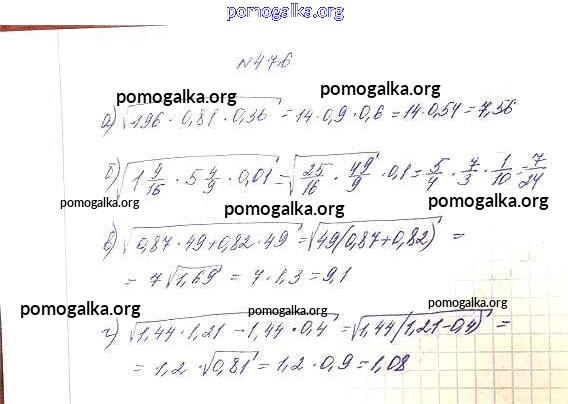 pomogalka.org
№476
pomogalka.org
pomogalka.org
а) √196 · 0,81 · 0,36 = 14 · 0,9 · 0,6 = 14 · 0,54 = 7,56
pomogalka.org
б) √1 9/16 · 5 4/9 · 0,01 = √25/16 · 49/9 · 0,1 = 5/4 · 7/3 · 1/10 = 7/24
pomogalka.org
pomogalka.org
pomogalka.org
в) √0,87 · 49 + 0,82 · 49 = √49(0,87 + 0,82) =
= 7√1,69 = 7 · 1,3 = 9,1
pomogalka.org
pomogalka.org
pomogalka.org
г) √1,44 · 1,21 − 1,44 · 0,4 = √1,44(1,21 − 0,4) =
= 1,2 · √0,81 = 1,2 · 0,9 = 1,08